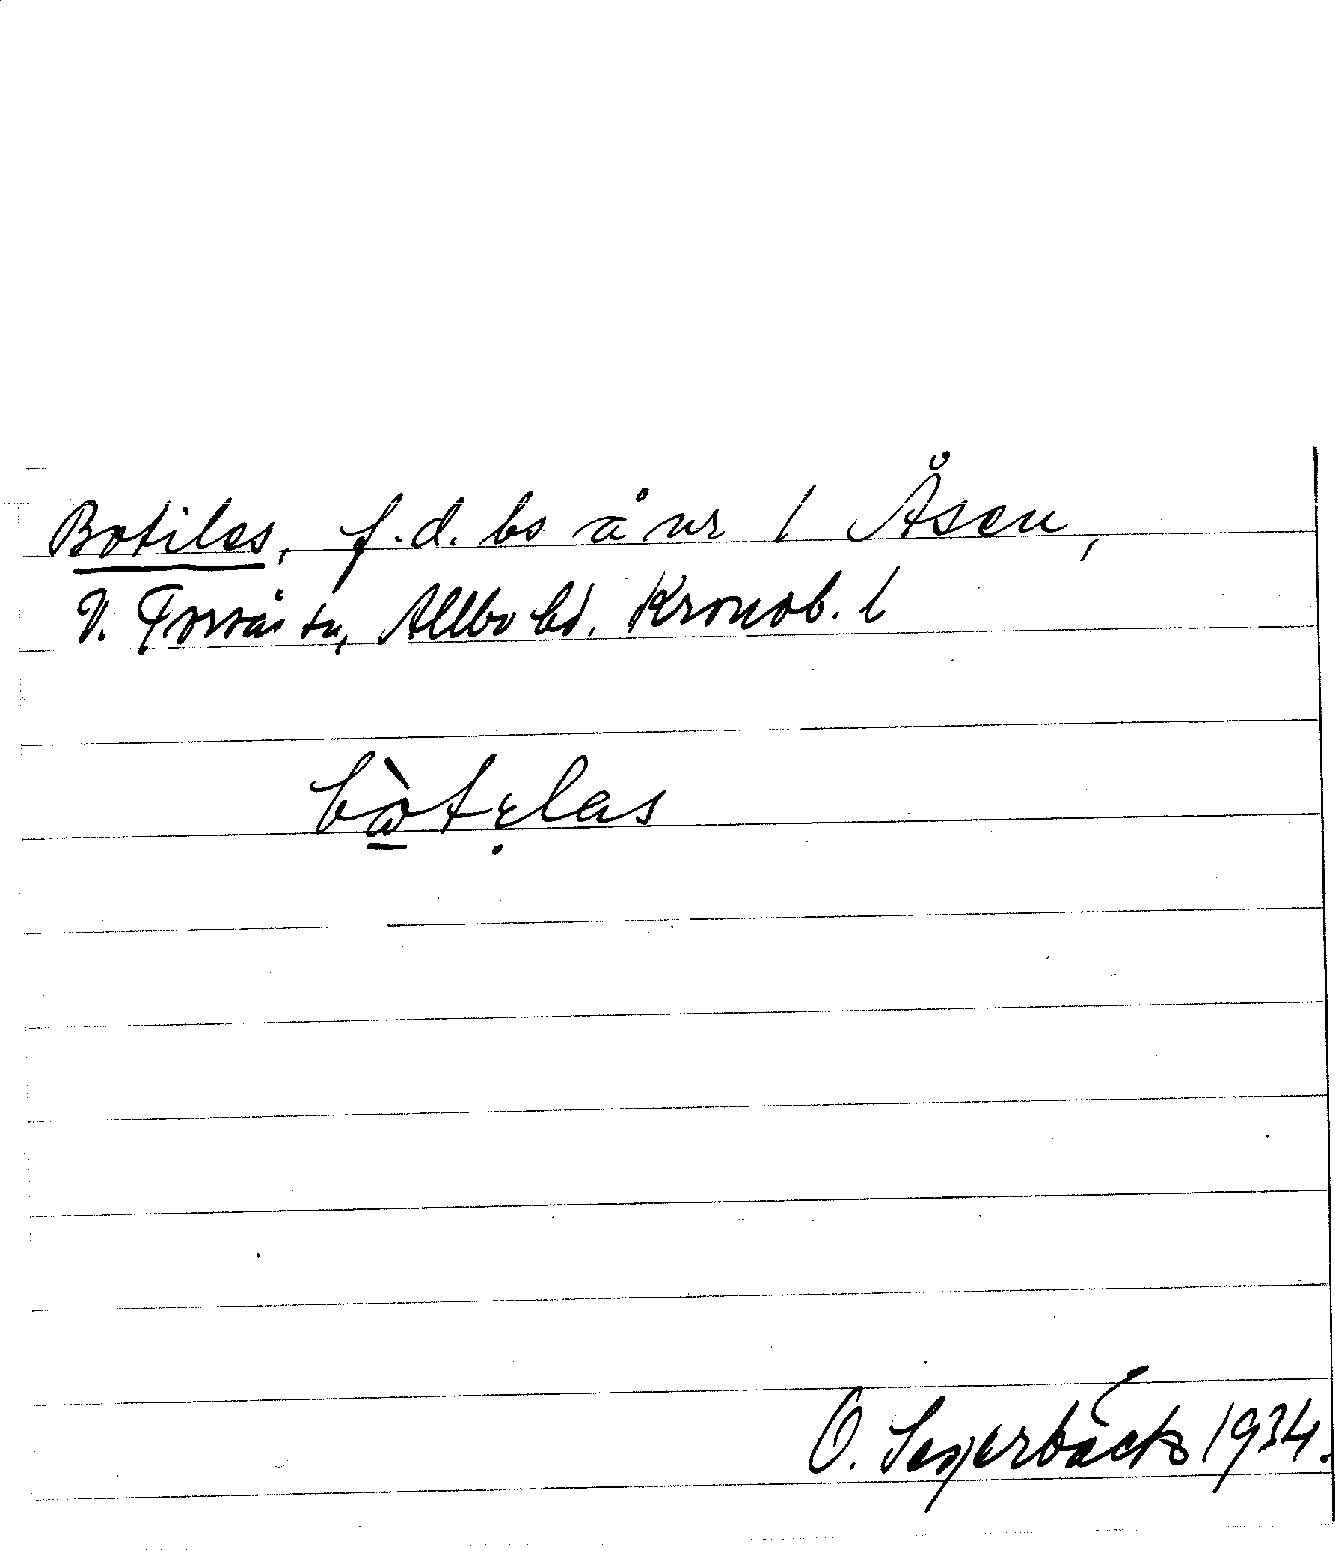 Botilas, f.d. bs å nr 1 Åsen,
V. Torsås sn, Allbo hd. Kronob. l
bòtelas
O. Segerbäck 1934.